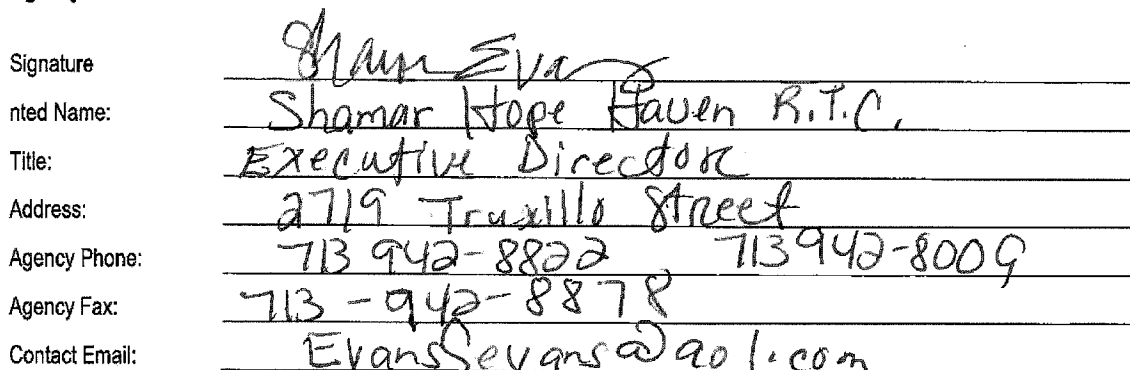 Signature
nted Name: Shamar Hope Haven R.T.C.
Title: Executive Director
Address: 2719 Truxillo Street
Agency Phone: 713 942-8822 713 942-8009
Agency Fax: 713-942-8878
Contact Email: @aol.com